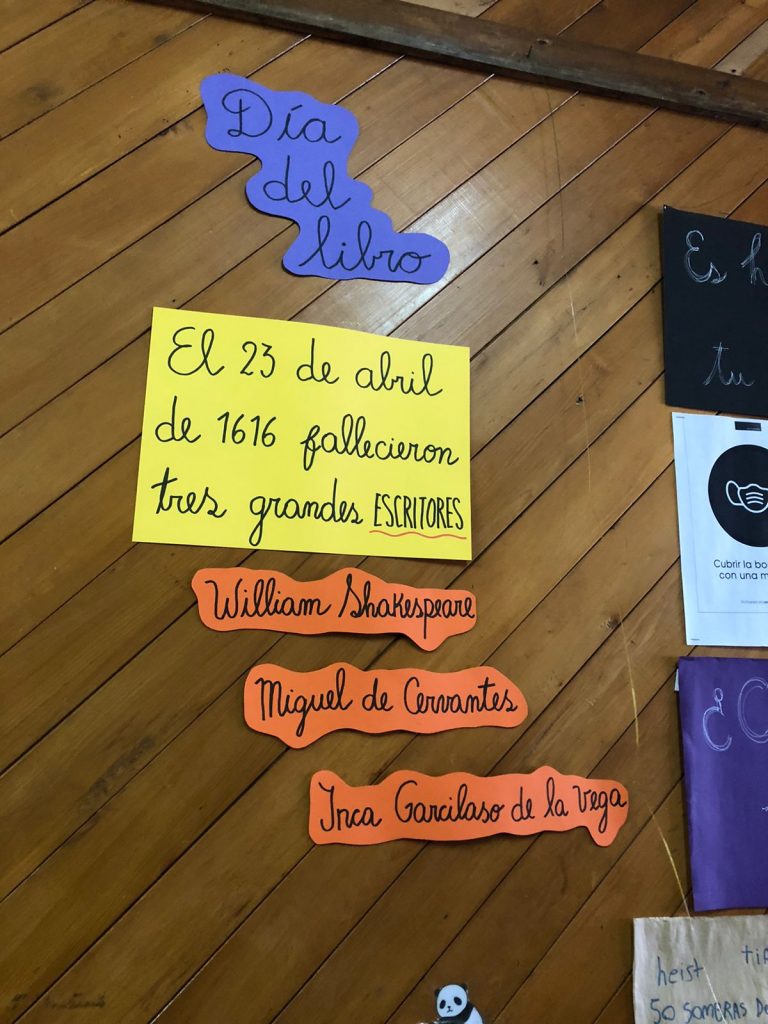 Día
del
libro
El 23 de abril
de 1616 fallecieron
tres grandes ESCRITORES
William Shakespeare
Miguel de Cervantes
Inca Garcilaso de la Vega
Es h
tu
Cubrir la bo
con una m
¿C
heist tip
50 SOMBRAS De